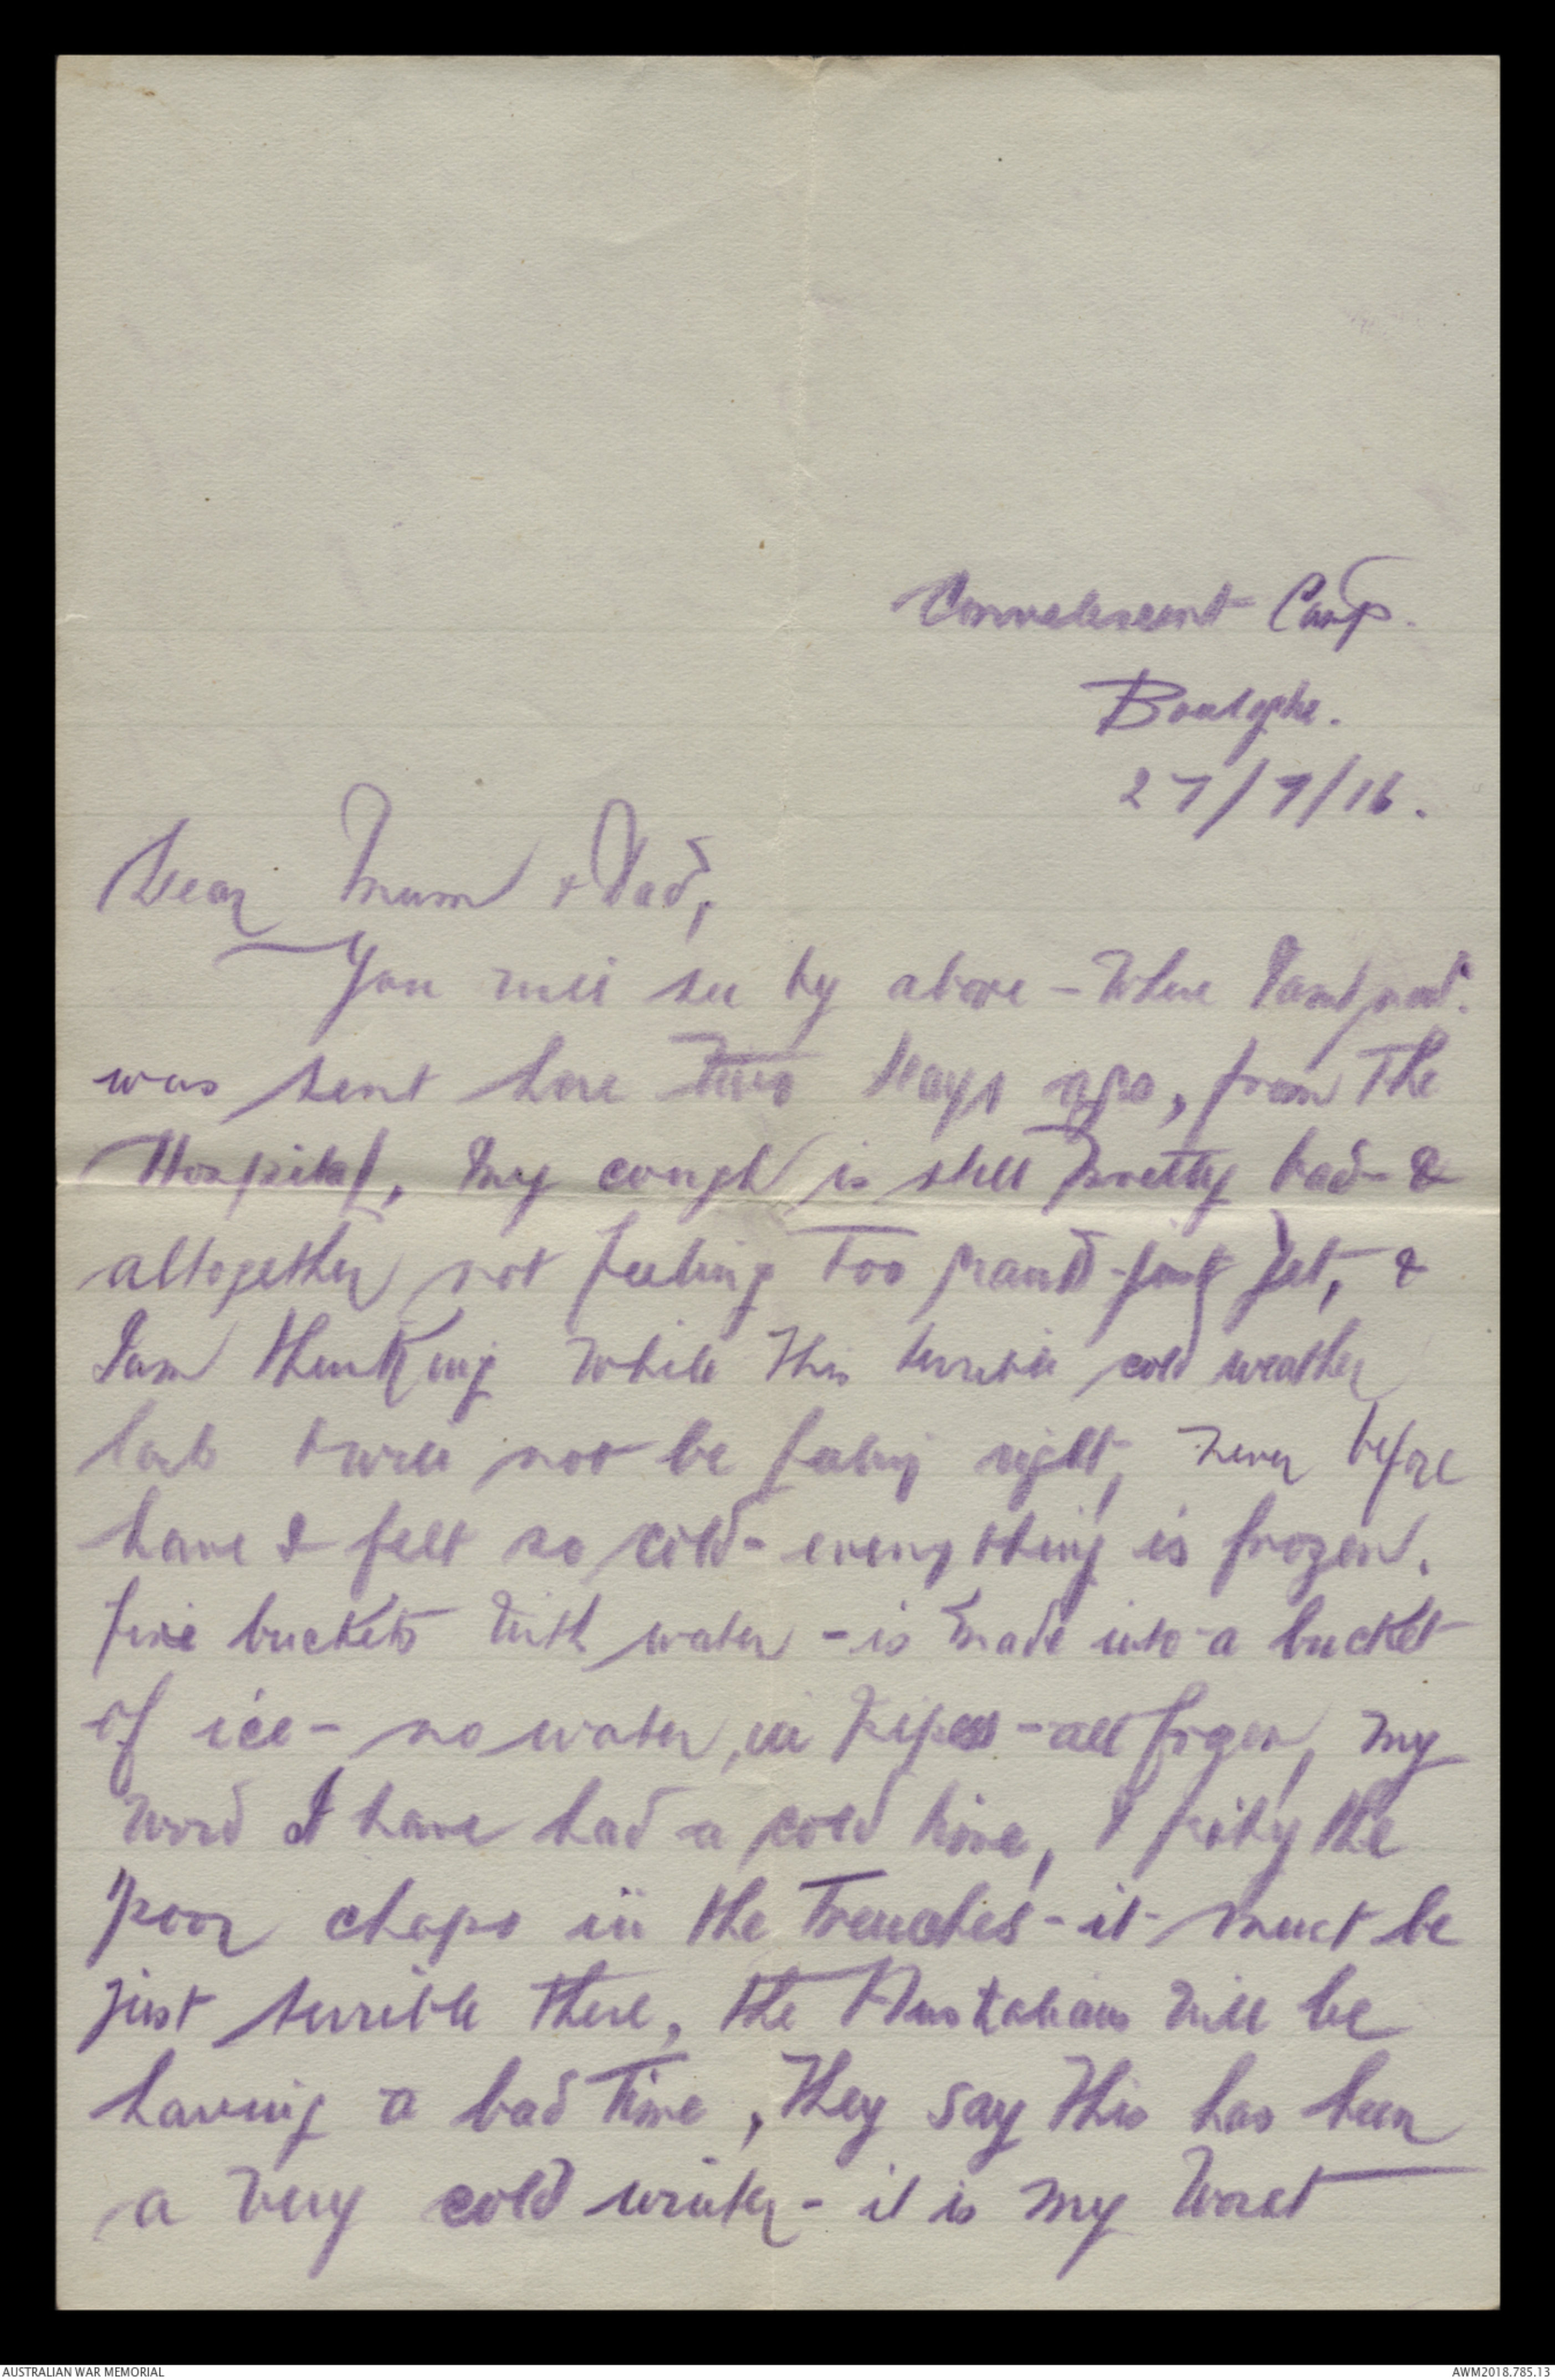 Convalescent Camp.
Boulogne.
27/1/16.
Dear Mum & Dad,
You will see by above - where I am
was sent here two days ago, from the
Hospital, my cough is still pretty bad - &
altogether not feeling too grand - just yet, &
I am thinking while this terrible cold weather
lasts I will not be feeling right, never before
have I felt so cold - everything is frozen.
fire buckets with water - is made into a bucket
of ice - no water, in pipes - all frozen, my
word I have had a cold time, I pity the
poor chaps in the trenches - it must be
just terrible there, the Australians will be
having a bad time, they say this has been
a very cold winter - it is my worst
AUSTRALIAN WAR MEMORIAL
AWM2018.785.13